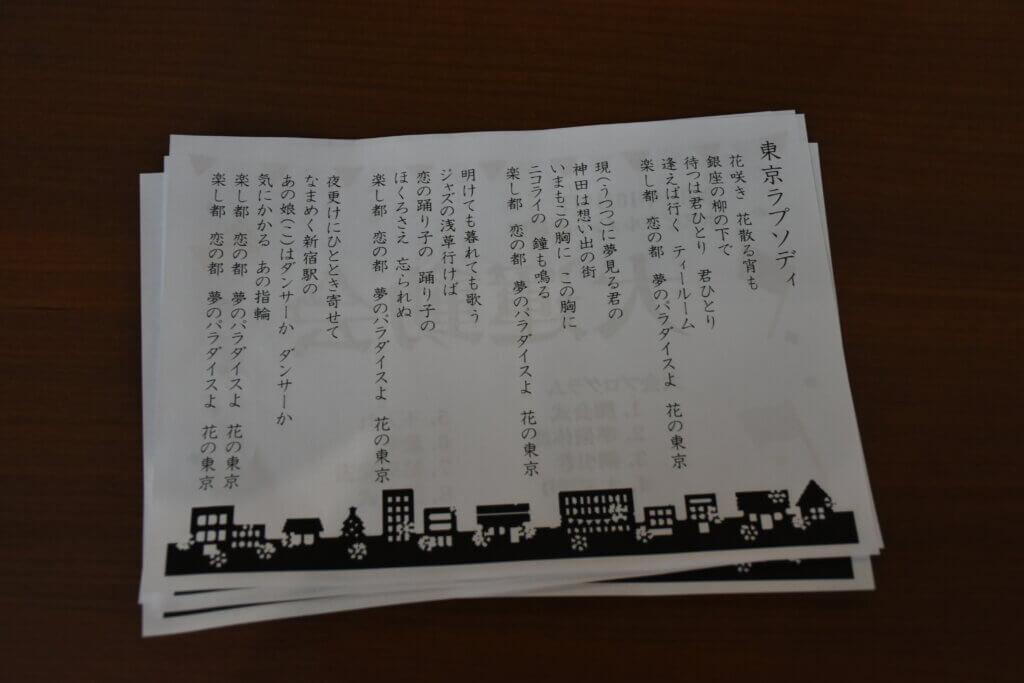 東京ラプソディ
花咲き　花散る宵も
銀座の柳の下で
待つは君ひとり　君ひとり
逢えば行く　ティールーム
楽し都　恋の都　夢のパラダイスよ　花の東京
現(うつつ)に夢見る君の
神田は想い出の街
いまもこの胸に　この胸に
ニコライの　鐘も鳴る
楽し都　恋の都　夢のパラダイスよ　花の東京
明けても暮れても歌う
ジャズの浅草行けば
恋の踊り子の　踊り子の
ほくろさえ　忘られぬ
楽し都　恋の都　夢のパラダイスよ　花の東京
夜更けにひととき寄せて
なまめく新宿駅の
あの娘(こ)はダンサーか　ダンサーか
気にかかる　あの指輪
楽し都　恋の都　夢のパラダイスよ　花の東京
楽し都　恋の都　夢のパラダイスよ　花の東京